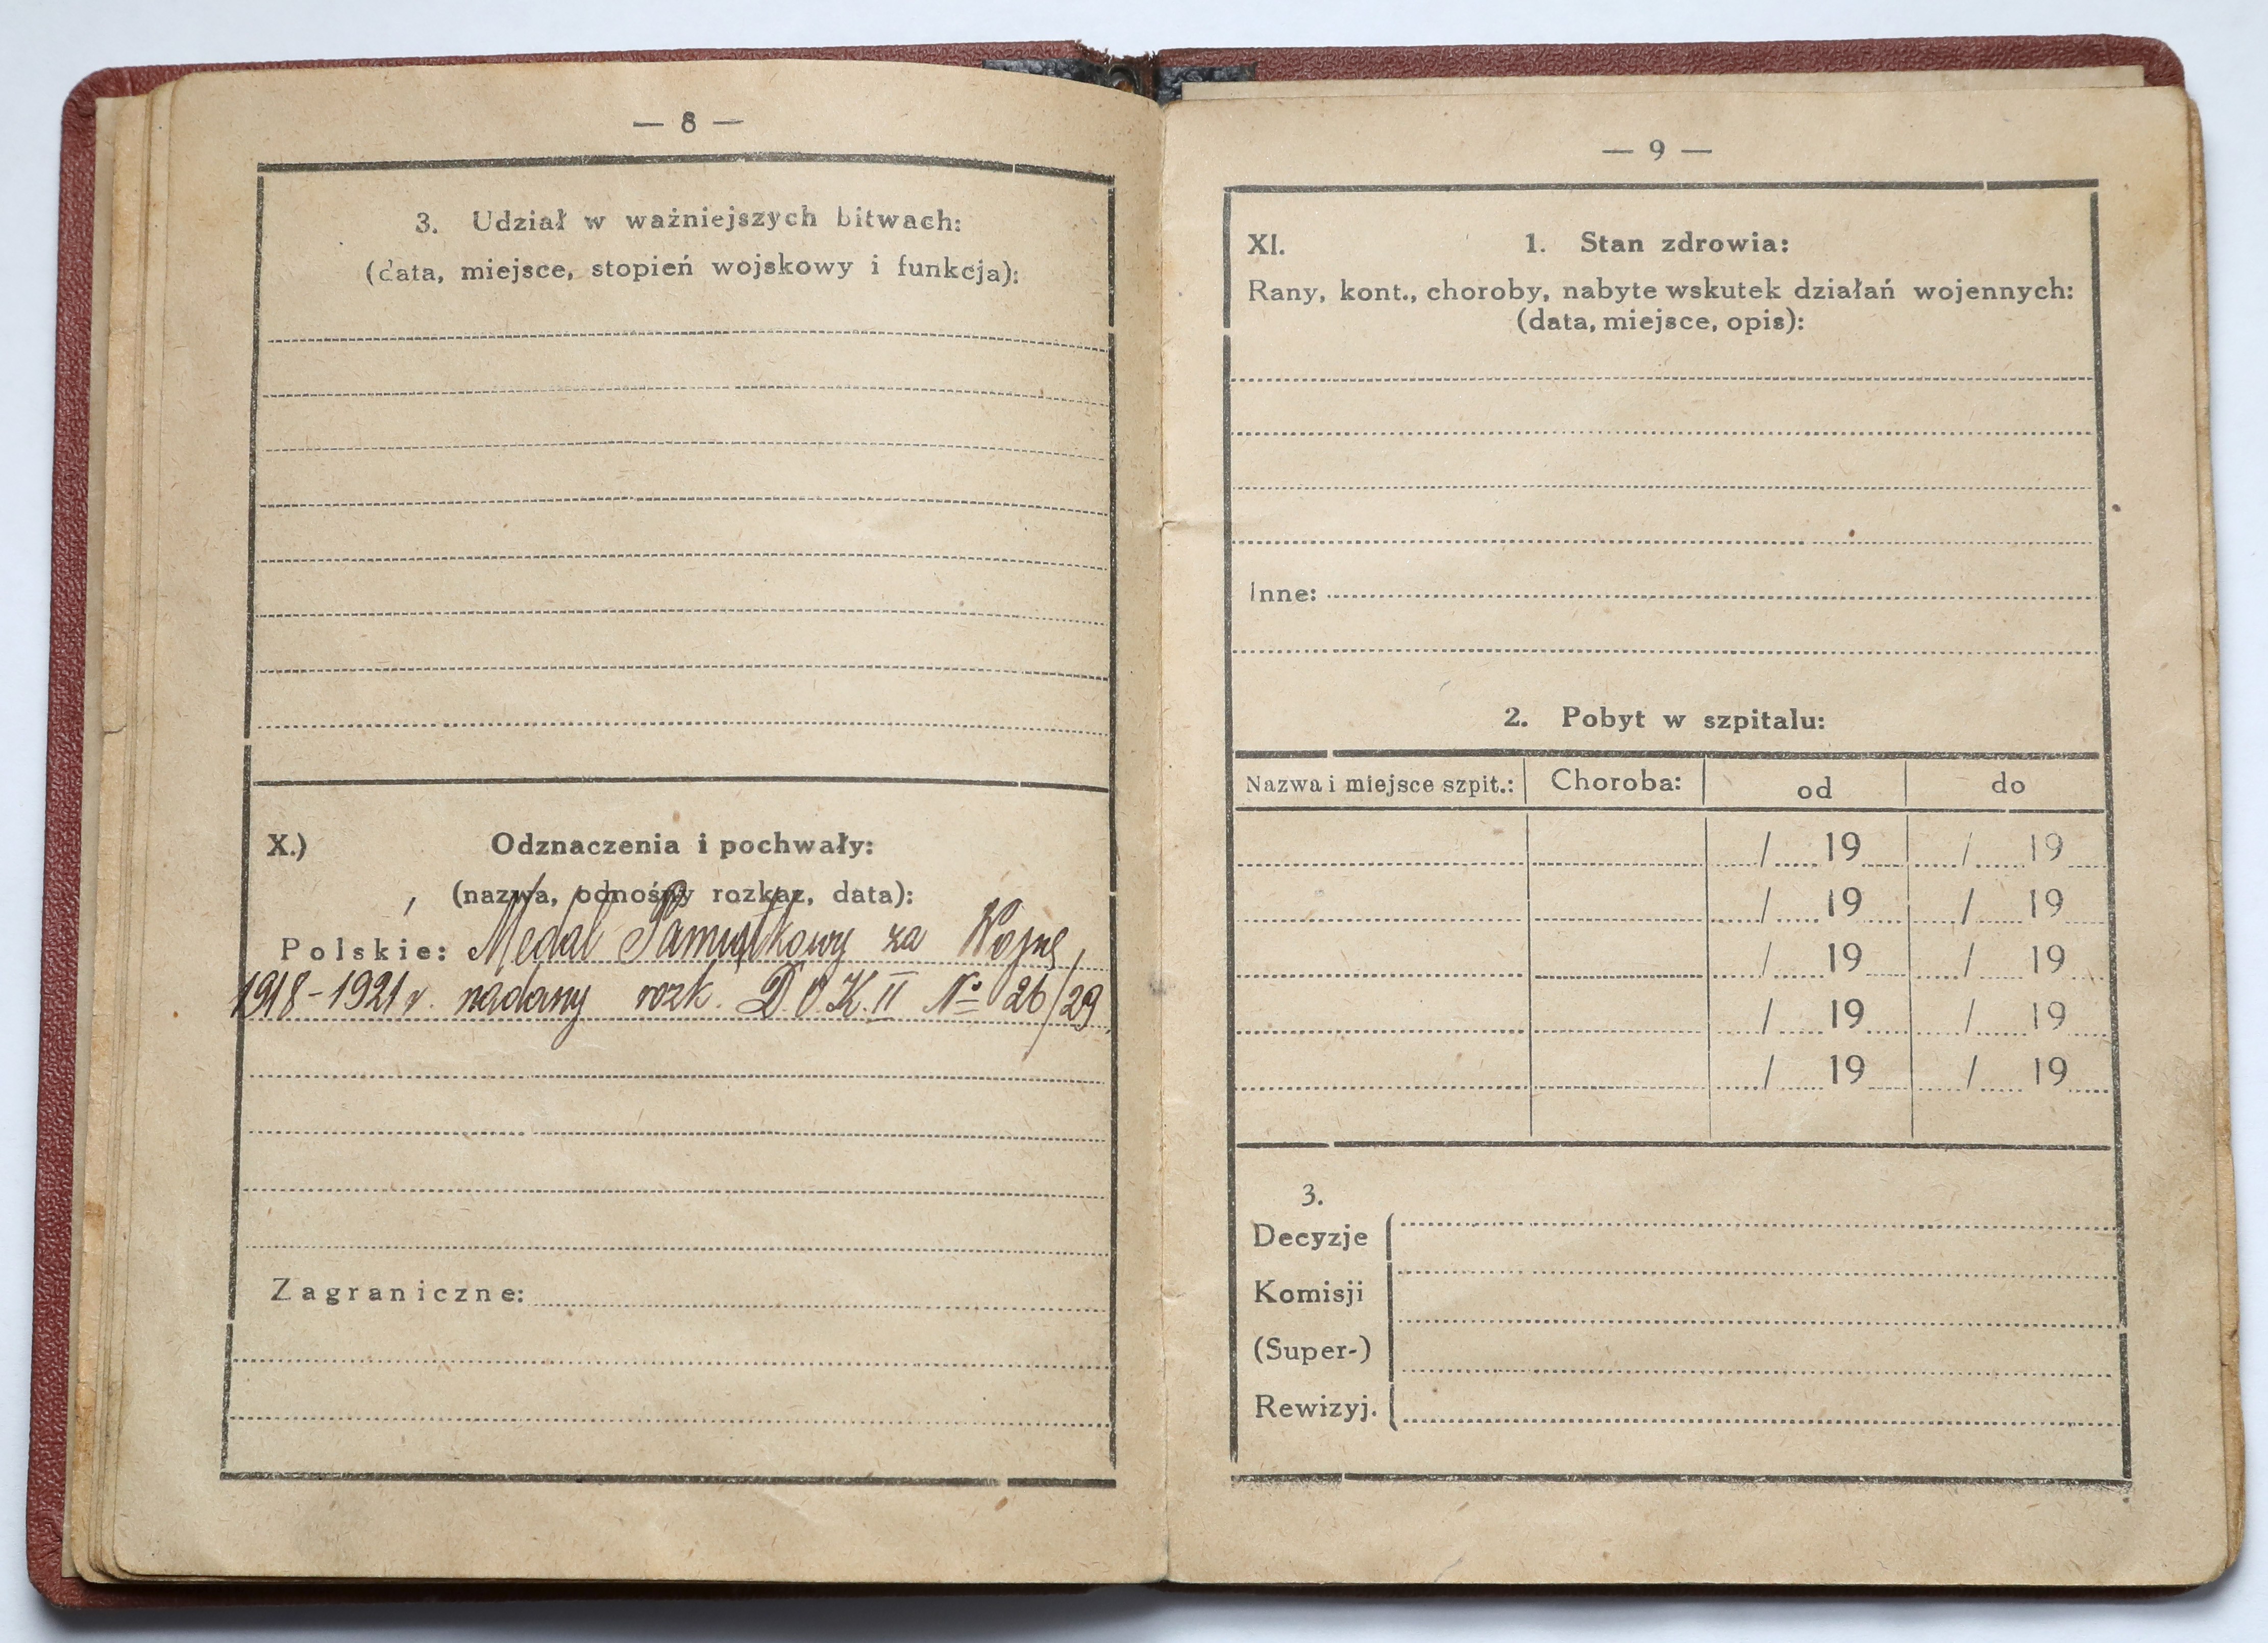 — 8 —
3. Udział w ważniejszych bitwach:
(data, miejsce, stopień wojskowy i funkcja):
X.) Odznaczenia i pochwały:
(nazwa, odnośny rozkaz, data):
Polskie: Medal Pamiątkowy za Wojnę
1918-1921 r. nadany rozk. D.O.K. II № 26/29
Zagraniczne:
— 9 —
XI. 1. Stan zdrowia:
Rany, kont., choroby, nabyte wskutek działań wojennych:
(data, miejsce, opis):
Inne:
2. Pobyt w szpitalu:
Nazwa i miejsce szpit.: Choroba: od do
/ 19 / 19
/ 19 / 19
/ 19 / 19
/ 19 / 19
/ 19 / 19
3.
Decyzje
Komisji
(Super-)
Rewizyj.